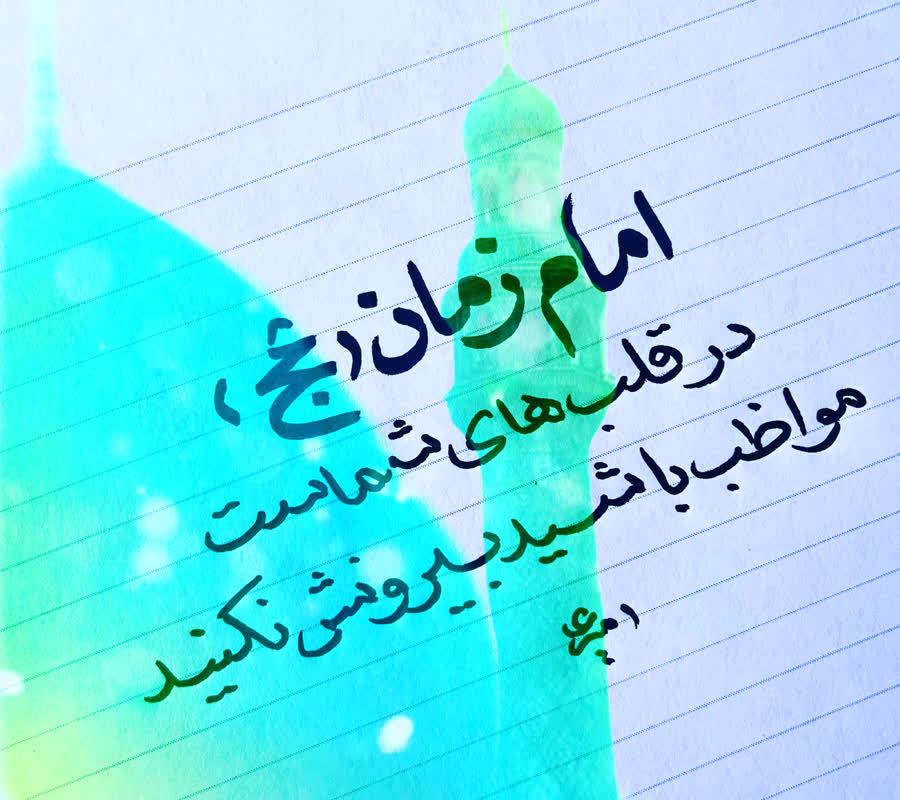 امام زمان (عج)
در قلب‌های شماست
مواظب باشید بیرونش نکنید